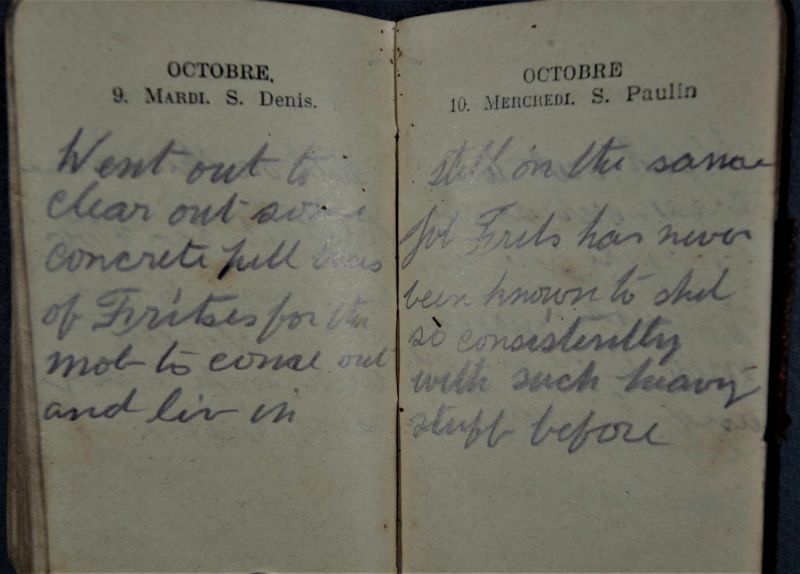 OCTOBRE,
9. MARDI. S. Denis.
Went out to
clear out some
concrete pill boxes
of Fritses for the
mob to come out
and liv in
OCTOBRE
10. MERCREDI. S. Paulin
still on the same
job Frits has never
been known to shel
so consistently
with such heavy
stuff before